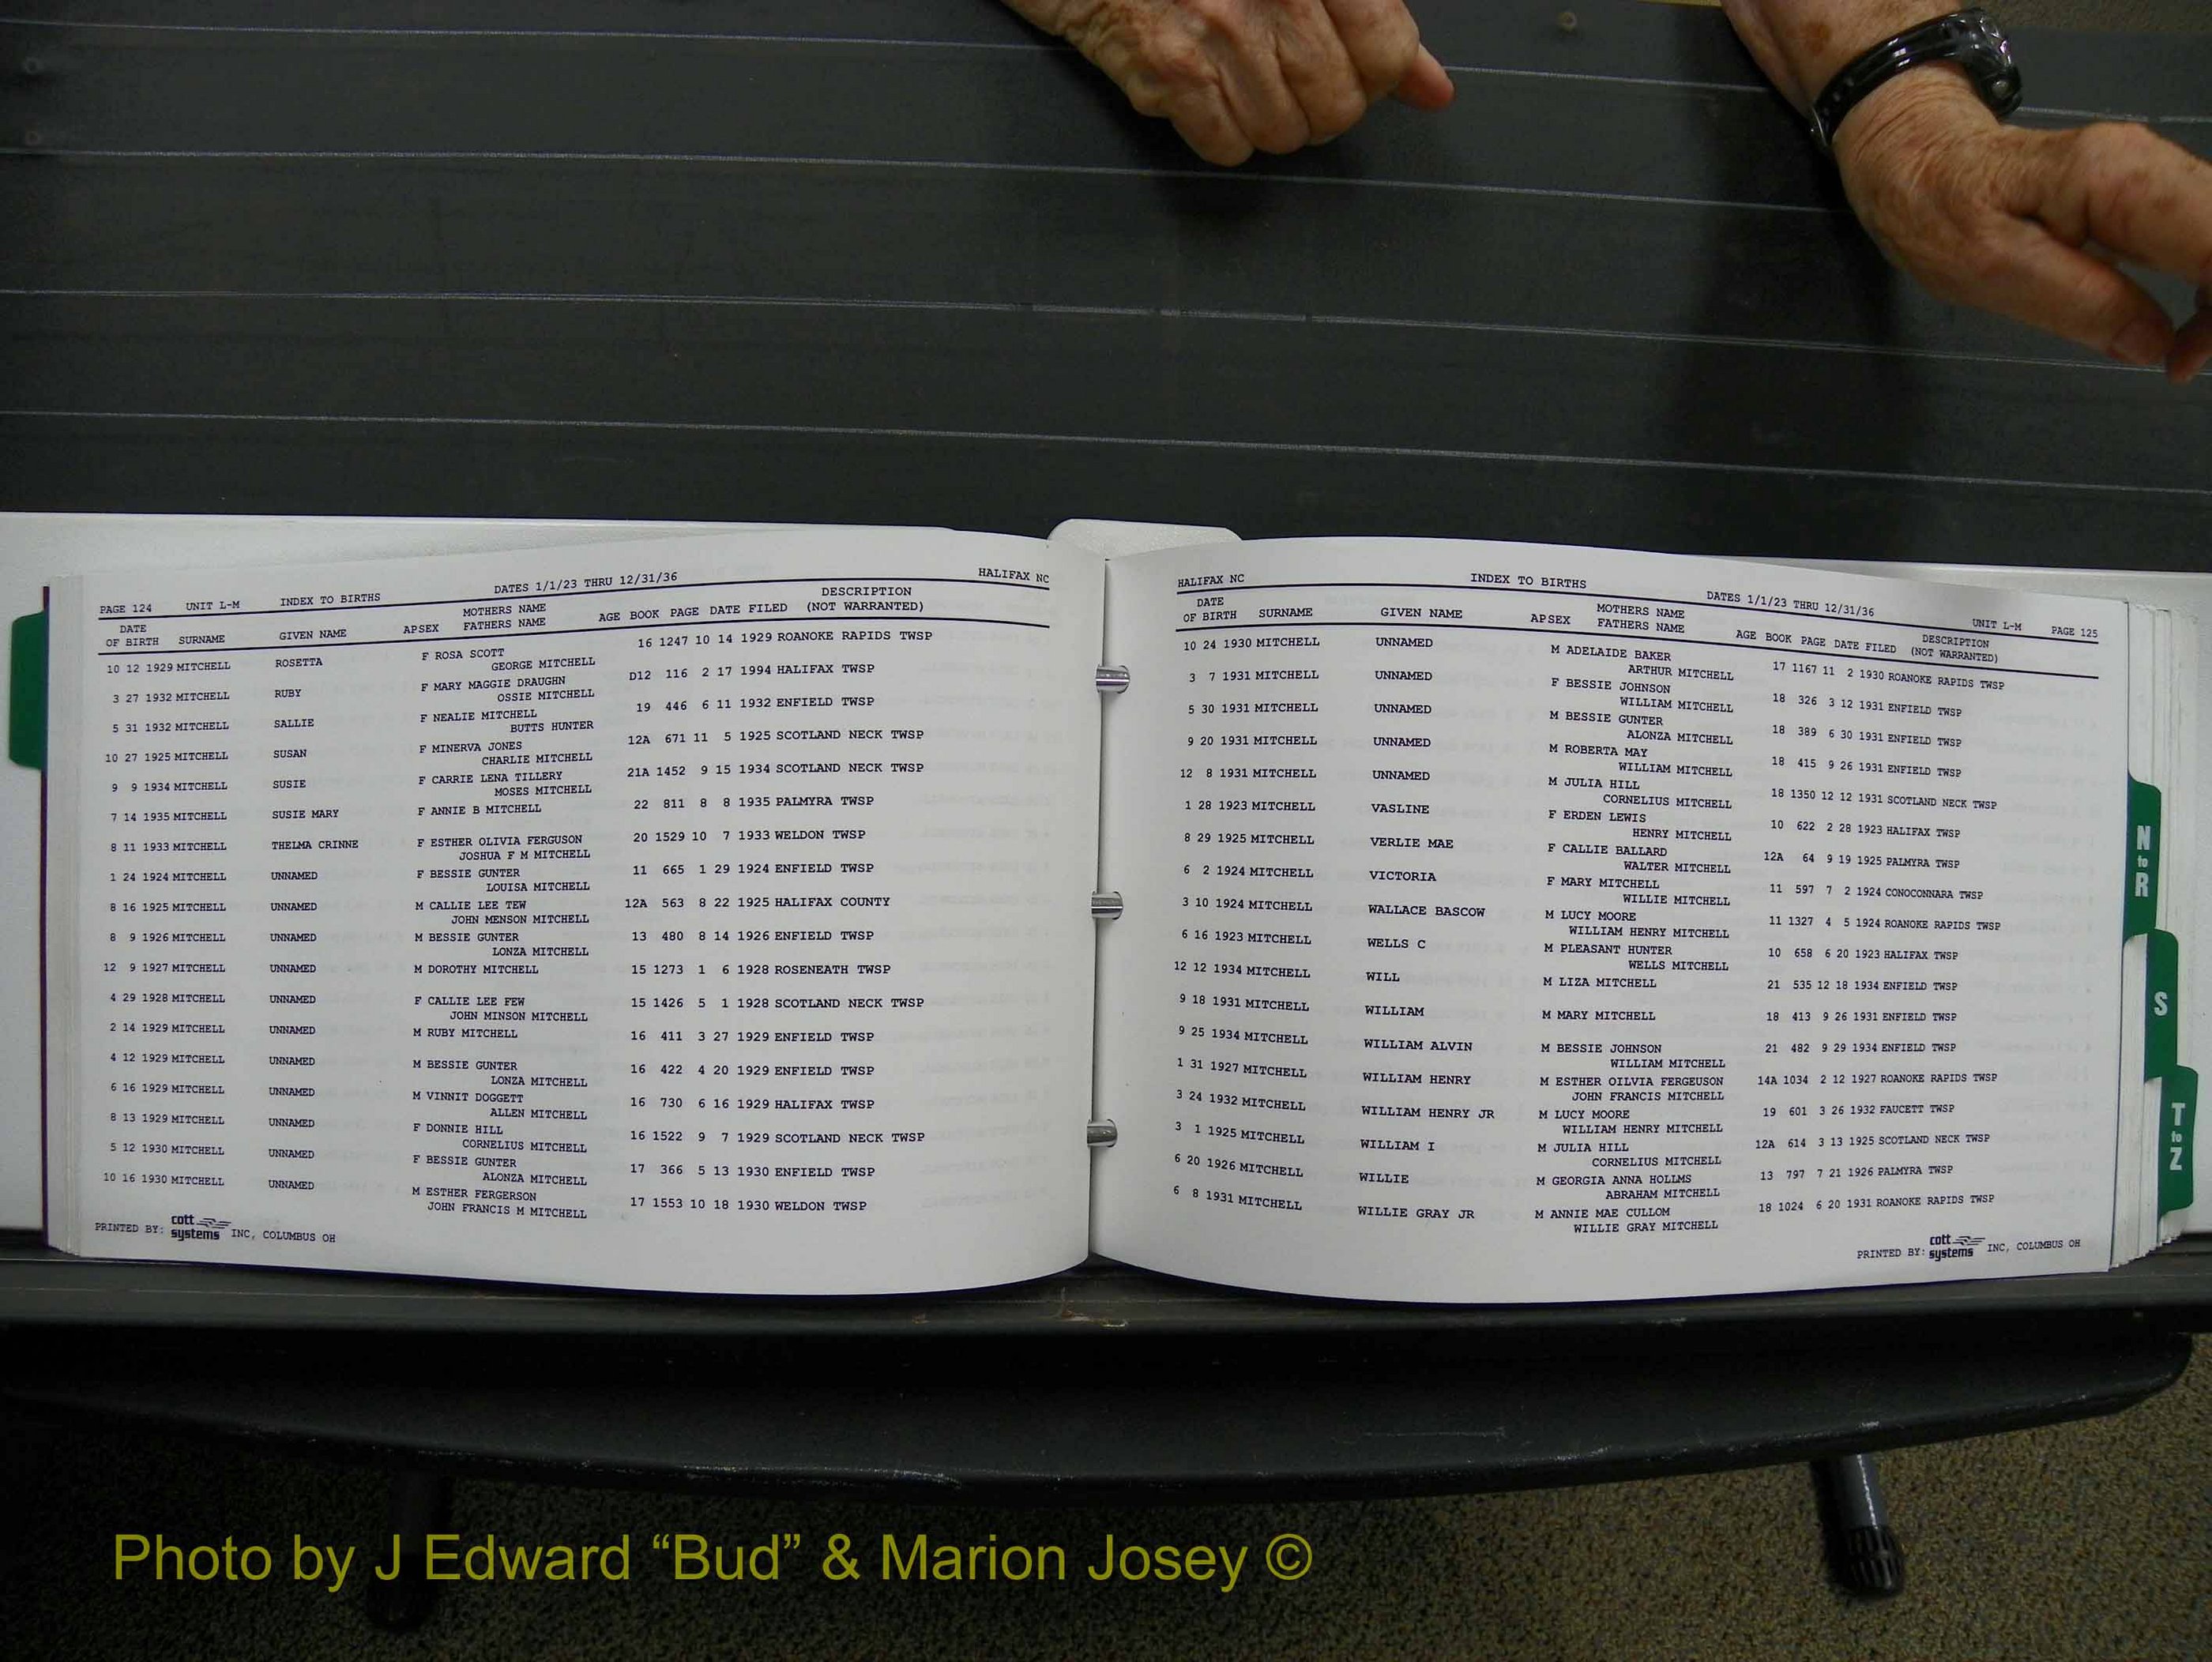 PAGE 124 UNIT L-M INDEX TO BIRTHS DATES 1/1/23 THRU 12/31/36 HALIFAX NC
DATE MOTHERS NAME DESCRIPTION
OF BIRTH SURNAME GIVEN NAME APSEX FATHERS NAME AGE BOOK PAGE DATE FILED (NOT WARRANTED)
10 12 1929 MITCHELL ROSETTA F ROSA SCOTT 16 1247 10 14 1929 ROANOKE RAPIDS TWSP
GEORGE MITCHELL
3 27 1932 MITCHELL RUBY F MARY MAGGIE DRAUGHN D12 116 2 17 1994 HALIFAX TWSP
OSSIE MITCHELL
5 31 1932 MITCHELL SALLIE F NEALIE MITCHELL 19 446 6 11 1932 ENFIELD TWSP
BUTTS HUNTER
10 27 1925 MITCHELL SUSAN F MINERVA JONES 12A 671 11 5 1925 SCOTLAND NECK TWSP
CHARLIE MITCHELL
9 9 1934 MITCHELL SUSIE F CARRIE LENA TILLERY 21A 1452 9 15 1934 SCOTLAND NECK TWSP
MOSES MITCHELL
7 14 1935 MITCHELL SUSIE MARY F ANNIE B MITCHELL 22 811 8 8 1935 PALMYRA TWSP
8 11 1933 MITCHELL THELMA CRINNE F ESTHER OLIVIA FERGUSON 20 1529 10 7 1933 WELDON TWSP
JOSHUA F M MITCHELL
1 24 1924 MITCHELL UNNAMED F BESSIE GUNTER 11 665 1 29 1924 ENFIELD TWSP
LOUISA MITCHELL
8 16 1925 MITCHELL UNNAMED M CALLIE LEE TEW 12A 563 8 22 1925 HALIFAX COUNTY
JOHN MENSON MITCHELL
8 9 1926 MITCHELL UNNAMED M BESSIE GUNTER 13 480 8 14 1926 ENFIELD TWSP
LONZA MITCHELL
12 9 1927 MITCHELL UNNAMED M DOROTHY MITCHELL 15 1273 1 6 1928 ROSENEATH TWSP
4 29 1928 MITCHELL UNNAMED F CALLIE LEE FEW 15 1426 5 1 1928 SCOTLAND NECK TWSP
JOHN MINSON MITCHELL
2 14 1929 MITCHELL UNNAMED M RUBY MITCHELL 16 411 3 27 1929 ENFIELD TWSP
4 12 1929 MITCHELL UNNAMED M BESSIE GUNTER 16 422 4 20 1929 ENFIELD TWSP
LONZA MITCHELL
6 16 1929 MITCHELL UNNAMED M VINNIT DOGGETT 16 730 6 16 1929 HALIFAX TWSP
ALLEN MITCHELL
8 13 1929 MITCHELL UNNAMED F DONNIE HILL 16 1522 9 7 1929 SCOTLAND NECK TWSP
CORNELIUS MITCHELL
5 12 1930 MITCHELL UNNAMED F BESSIE GUNTER 17 366 5 13 1930 ENFIELD TWSP
ALONZA MITCHELL
10 16 1930 MITCHELL UNNAMED M ESTHER FERGERSON 17 1553 10 18 1930 WELDON TWSP
JOHN FRANCIS M MITCHELL
PRINTED BY: cott systems INC, COLUMBUS OH
HALIFAX NC INDEX TO BIRTHS DATES 1/1/23 THRU 12/31/36 UNIT L-M PAGE 125
DATE MOTHERS NAME DESCRIPTION
OF BIRTH SURNAME GIVEN NAME APSEX FATHERS NAME AGE BOOK PAGE DATE FILED (NOT WARRANTED)
10 24 1930 MITCHELL UNNAMED M ADELAIDE BAKER 17 1167 11 2 1930 ROANOKE RAPIDS TWSP
ARTHUR MITCHELL
3 7 1931 MITCHELL UNNAMED F BESSIE JOHNSON 18 326 3 12 1931 ENFIELD TWSP
WILLIAM MITCHELL
5 30 1931 MITCHELL UNNAMED M BESSIE GUNTER 18 389 6 30 1931 ENFIELD TWSP
ALONZA MITCHELL
9 20 1931 MITCHELL UNNAMED M ROBERTA MAY 18 415 9 26 1931 ENFIELD TWSP
WILLIAM MITCHELL
12 8 1931 MITCHELL UNNAMED M JULIA HILL 18 1350 12 12 1931 SCOTLAND NECK TWSP
CORNELIUS MITCHELL
1 28 1923 MITCHELL VASLINE F ERDEN LEWIS 10 622 2 28 1923 HALIFAX TWSP
HENRY MITCHELL
8 29 1925 MITCHELL VERLIE MAE F CALLIE BALLARD 12A 64 9 19 1925 PALMYRA TWSP
WALTER MITCHELL
6 2 1924 MITCHELL VICTORIA F MARY MITCHELL 11 597 7 2 1924 CONOCONNARA TWSP
WILLIE MITCHELL
3 10 1924 MITCHELL WALLACE BASCOW M LUCY MOORE 11 1327 4 5 1924 ROANOKE RAPIDS TWSP
WILLIAM HENRY MITCHELL
6 16 1923 MITCHELL WELLS C M PLEASANT HUNTER 10 658 6 20 1923 HALIFAX TWSP
WELLS MITCHELL
12 12 1934 MITCHELL WILL M LIZA MITCHELL 21 535 12 18 1934 ENFIELD TWSP
9 18 1931 MITCHELL WILLIAM M MARY MITCHELL 18 413 9 26 1931 ENFIELD TWSP
9 25 1934 MITCHELL WILLIAM ALVIN M BESSIE JOHNSON 21 482 9 29 1934 ENFIELD TWSP
WILLIAM MITCHELL
1 31 1927 MITCHELL WILLIAM HENRY M ESTHER OILVIA FERGEUSON 14A 1034 2 12 1927 ROANOKE RAPIDS TWSP
JOHN FRANCIS MITCHELL
3 24 1932 MITCHELL WILLIAM HENRY JR M LUCY MOORE 19 601 3 26 1932 FAUCETT TWSP
WILLIAM HENRY MITCHELL
3 1 1925 MITCHELL WILLIAM I M JULIA HILL 12A 614 3 13 1925 SCOTLAND NECK TWSP
CORNELIUS MITCHELL
6 20 1926 MITCHELL WILLIE M GEORGIA ANNA HOLLMS 13 797 7 21 1926 PALMYRA TWSP
ABRAHAM MITCHELL
6 8 1931 MITCHELL WILLIE GRAY JR M ANNIE MAE CULLOM 18 1024 6 20 1931 ROANOKE RAPIDS TWSP
WILLIE GRAY MITCHELL
PRINTED BY: cott systems INC, COLUMBUS OH
N to R
S
T to Z
Photo by J Edward “Bud” & Marion Josey ©